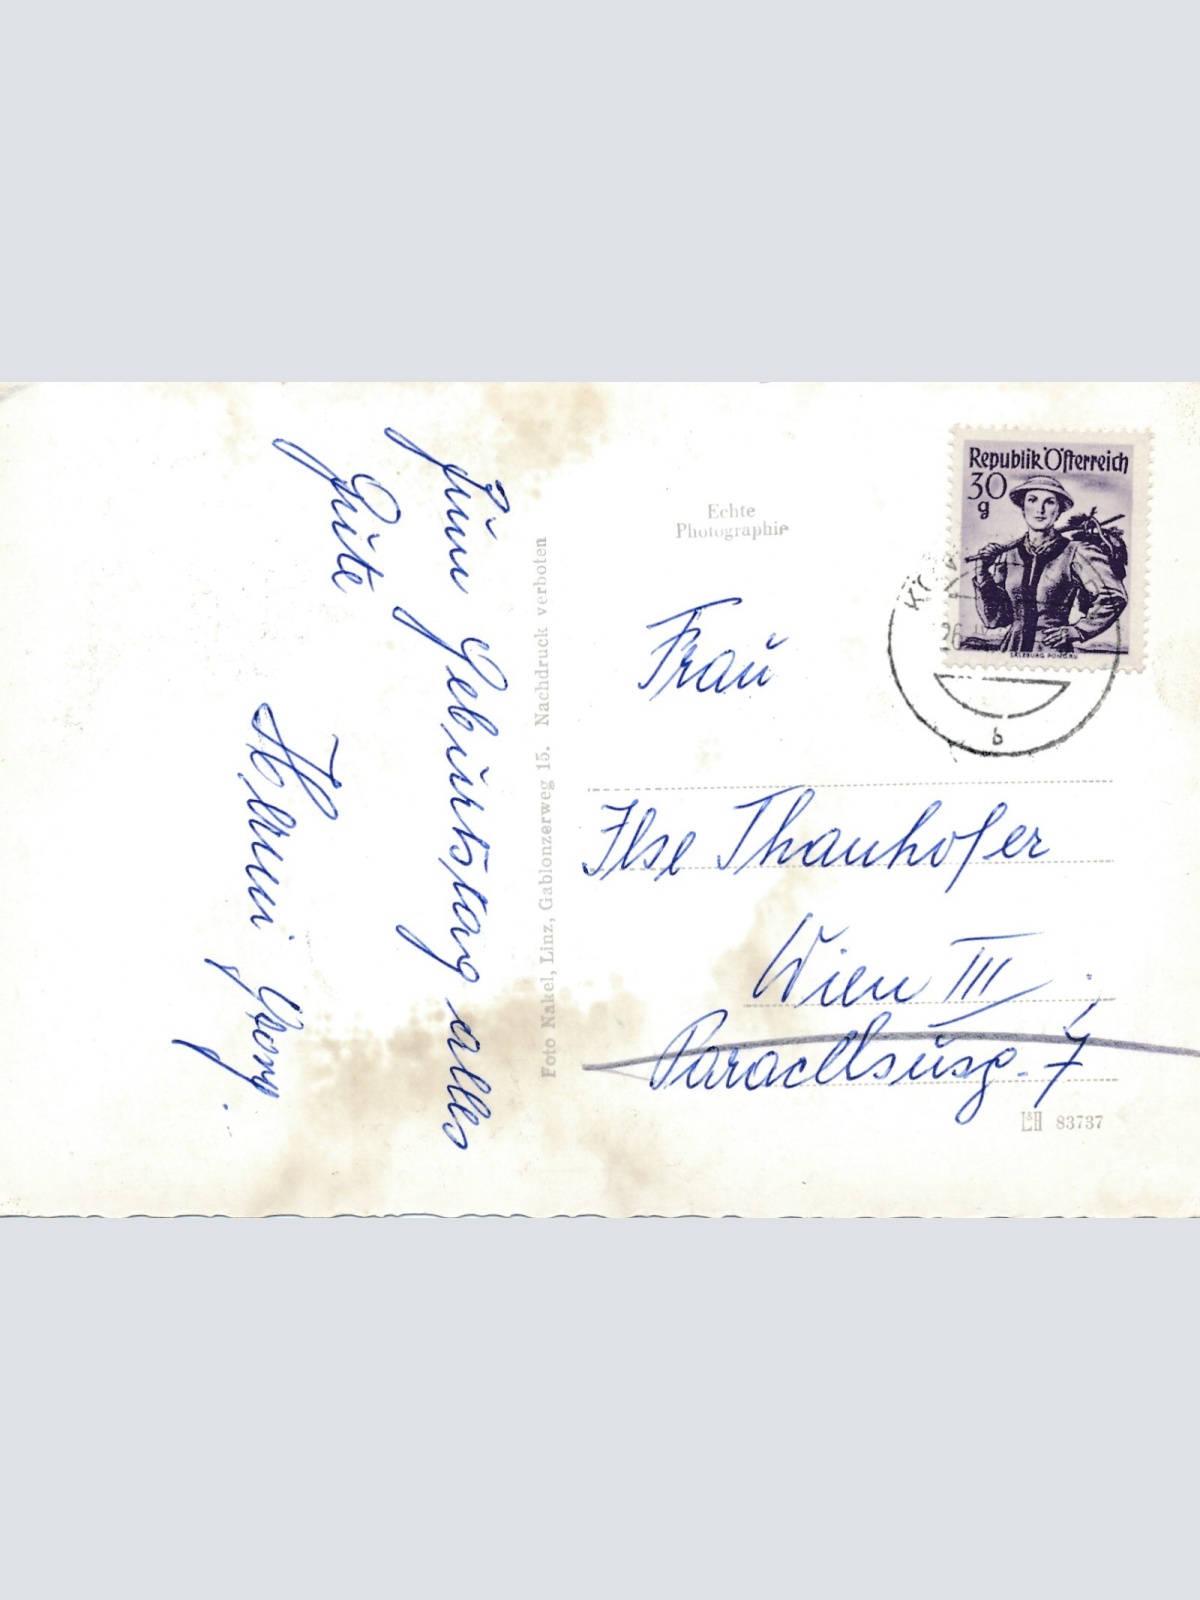 Zum Geburtstag alles
Gute
Hermi
Foto Nakel, Linz, Gablonzerweg 15. Nachdruck verboten
Echte
Photographie
Republik Österreich
30
g
SALZBURG PONGAU
26
b
Frau
Ilse Thanhofer
Wien III
Paracelsusg. 7
L&H 83737